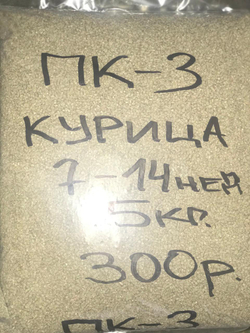 ПК-3
КУРИЦА
7-14 нед
5кг.
300р.
ПК-3